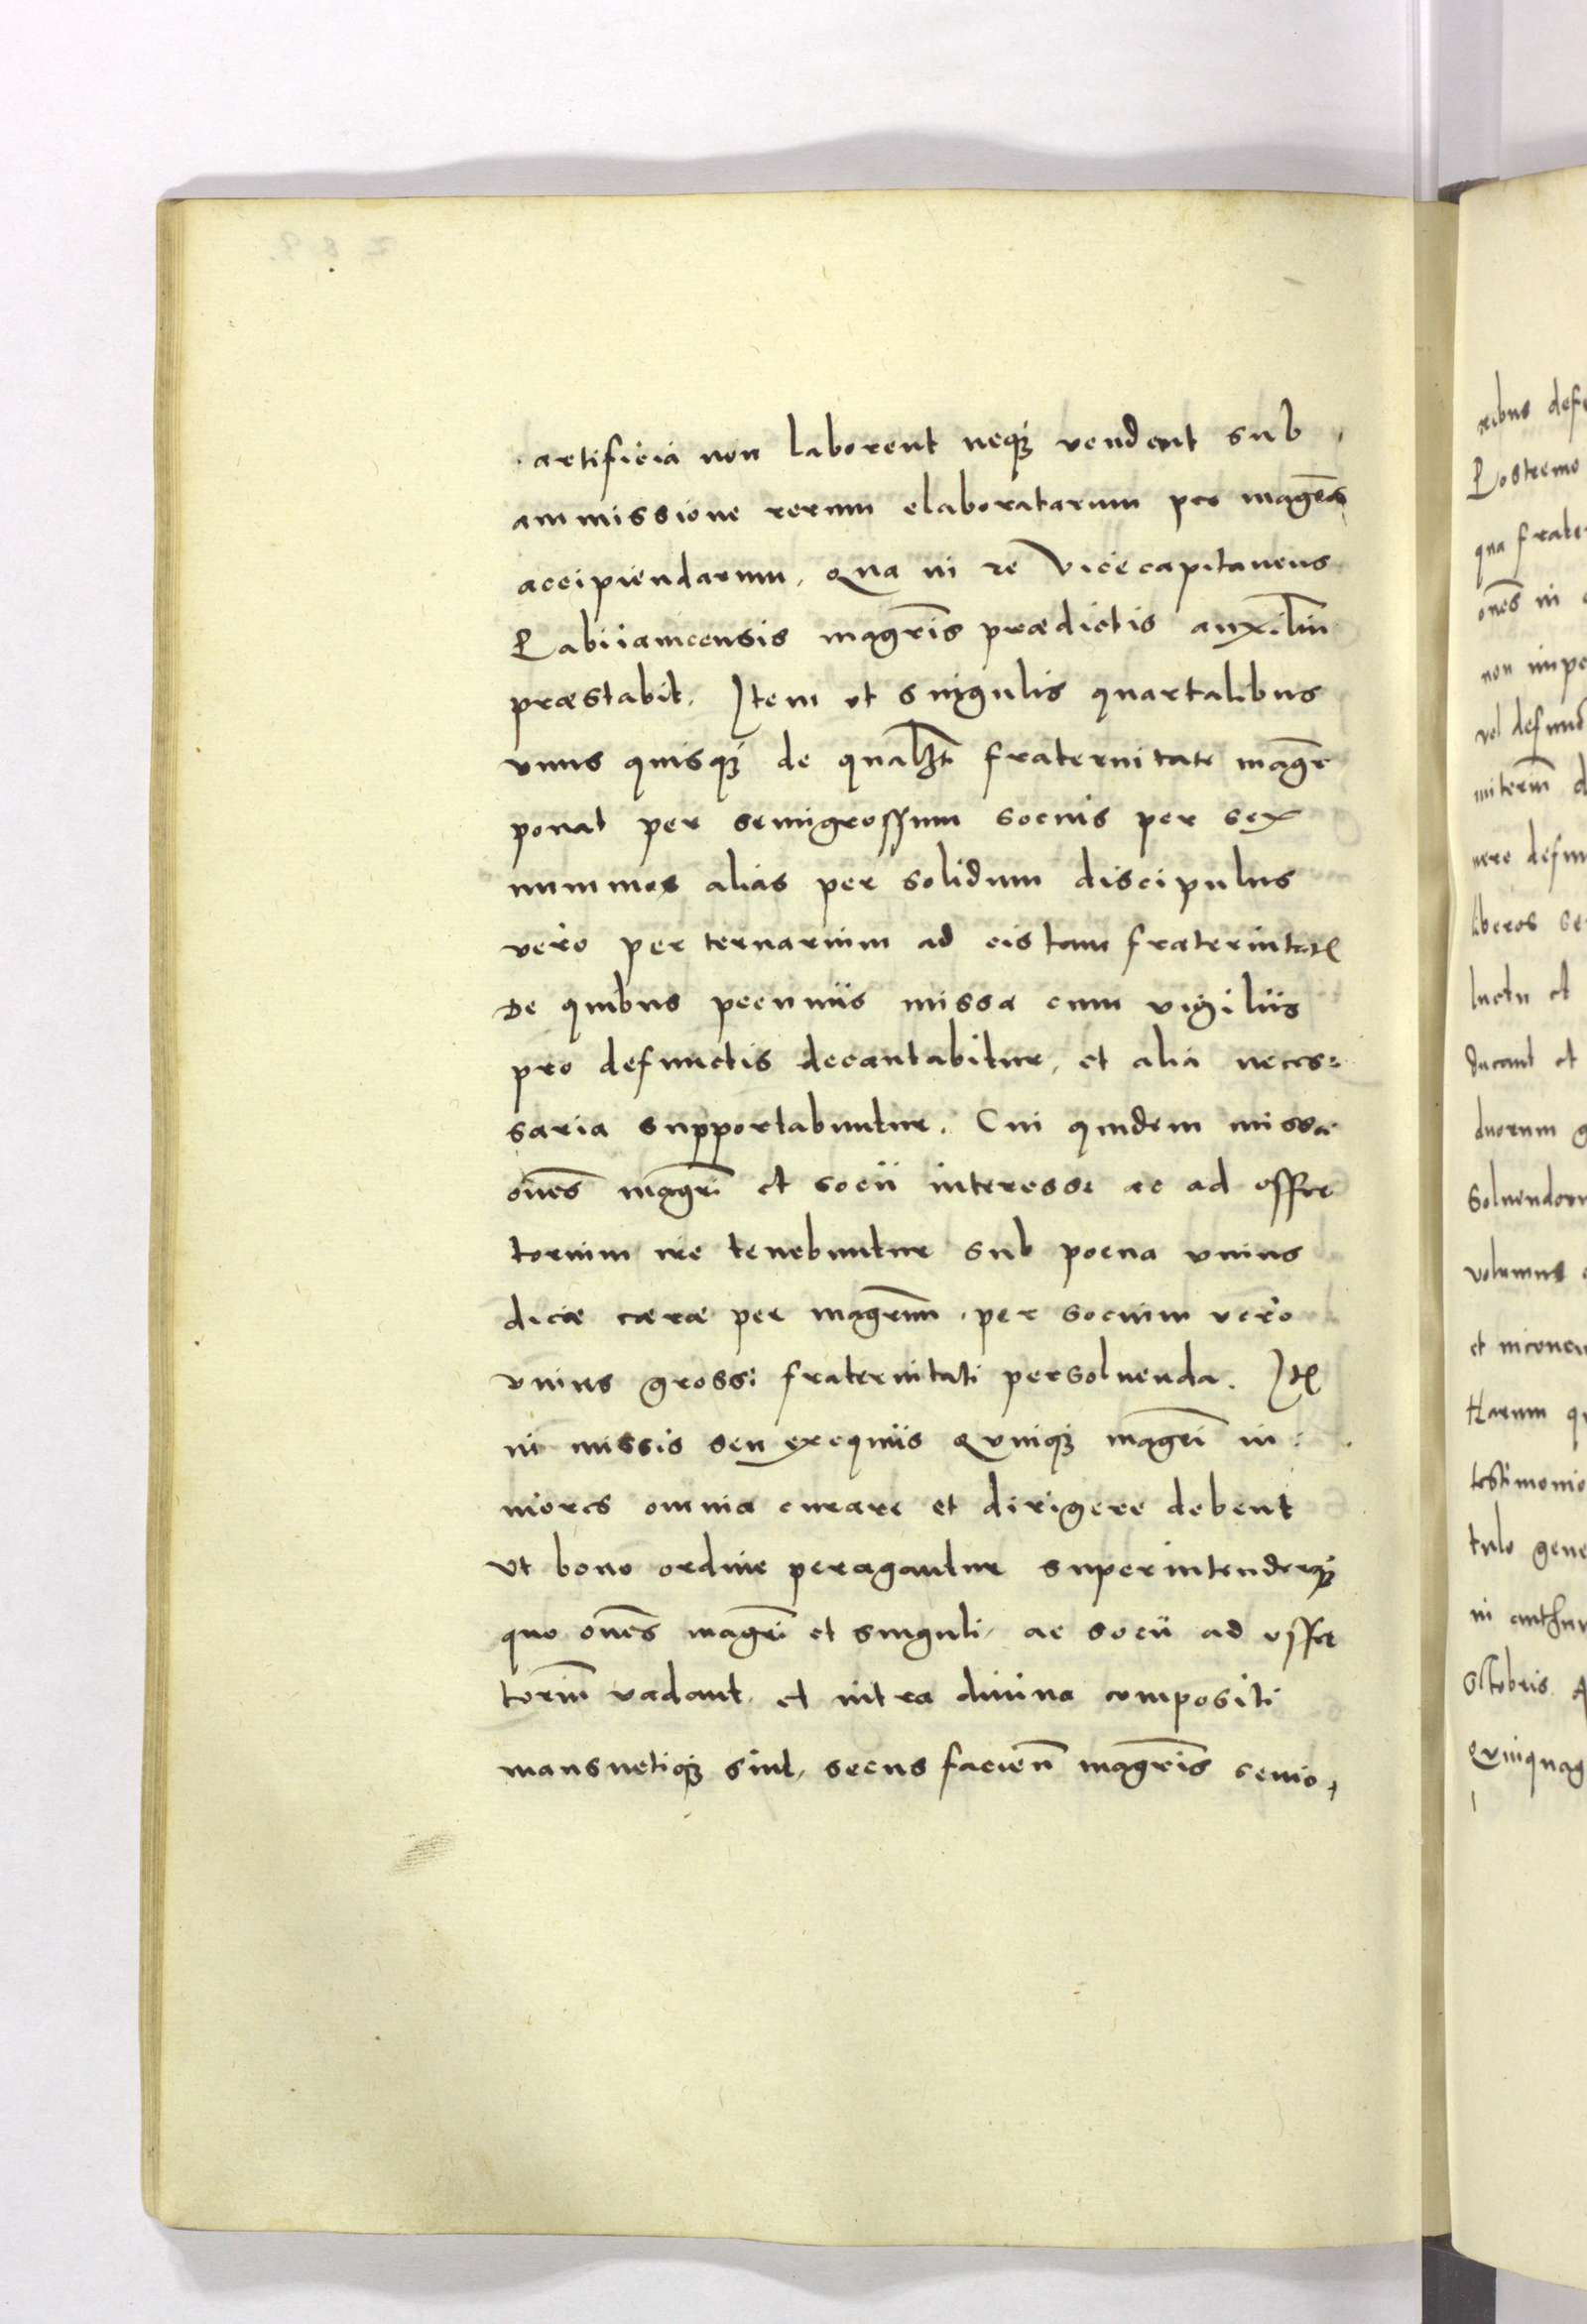 artificia non laborent neqꝫ vendant sub
ammissione rerum elaboratarum per magr̃os
accipiendarum, Qua in re Vicecapitaneus
Pabiianicensis magr̃is prædictis auxiliũ
præstabit. Item vt singulis quartalibus
vnus quisqꝫ de qualꝫt fraternitate magr̃
ponat per semigrossum socius per sex
nummos alias per solidum discipulus
vero per ternarium ad cistam fraternitatꝭ
De quibus pecuniis missa cum vigiliis
pro defunctis decantabitur, et alia neces:
saria supportabuntur. Cui quidem missæ
om̃es magr̃i et socii interesse ac ad offer
torium ire tenebuntur sub poena vnius
dicæ ceræ per magr̃um, per socium vero
vnius grossi fraternitati persoluenda. Itꝭ
in missis seu exequiis Quinqꝫ magr̃i iu:
niores omnia curare et dirigere debent
vt bono ordine peragantur superintenderqꝫ
quo om̃es magr̃i et singuli, ac socii ad offer
toriũ vadant, et intra diuina compositi
mansuetiqꝫ sint, secus facieñ magr̃is senio,
ribus
Postremo
qua
om̃es in
non
vel
miteriũ
vere
liberos
luctu et
ducant et
duorum
Soluendorum
volumus
et
tarum
testimonio
tulo
in
Octobris
Quinquag